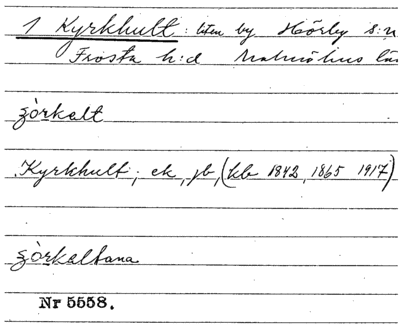 1 Kyrkhult : liten by Hörby s:n
Frosta h:d Malmöhus län
ʒòrkalt
Kyrkhult; ek, jb, (kb 1842, 1865 1917)
ʒòrkaltana
Nr 5558.